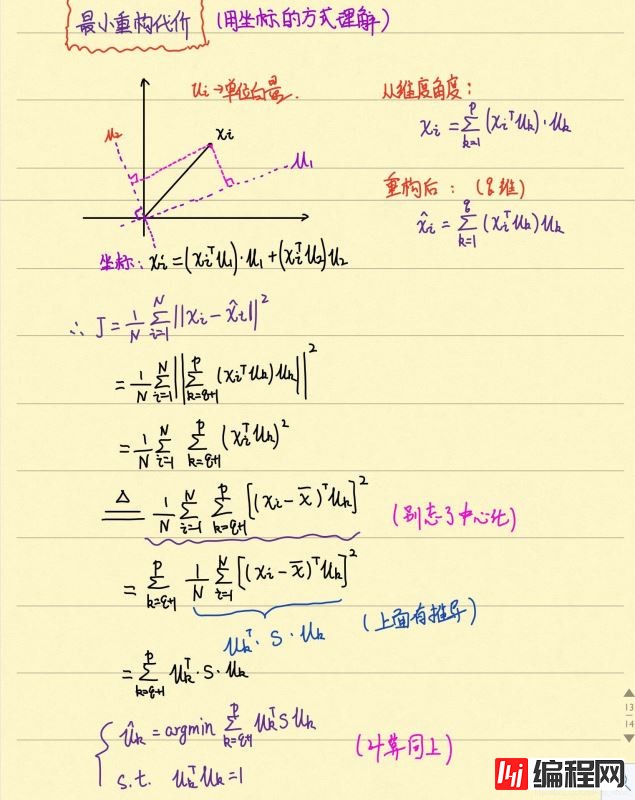 最小重构代价 (用坐标的方式理解)
u_i→单位向量.
从维度角度:
x_i = \sum_{k=1}^{p} (x_i^T u_k)·u_k
u_2
x_i
u_1
重构后: (q维)
\hat{x}_i = \sum_{k=1}^{q} (x_i^T u_k) u_k
坐标: x_i = (x_i^T u_1)·u_1 + (x_i^T u_2) u_2
∴ J = \frac{1}{N} \sum_{i=1}^{N} ||x_i - \hat{x}_i||^2
= \frac{1}{N} \sum_{i=1}^{N} ||\sum_{k=q+1}^{p} (x_i^T u_k) u_k||^2
= \frac{1}{N} \sum_{i=1}^{N} \sum_{k=q+1}^{p} (x_i^T u_k)^2
\stackrel{Δ}{=} \frac{1}{N} \sum_{i=1}^{N} \sum_{k=q+1}^{p} [(x_i - \bar{x})^T u_k]^2 (别忘了中心化)
= \sum_{k=q+1}^{p} \frac{1}{N} \sum_{i=1}^{N} [(x_i - \bar{x})^T u_k]^2
u_k^T · S · u_k (上面有推导)
= \sum_{k=q+1}^{p} u_k^T · S · u_k
{ \hat{u}_k = argmin \sum_{k=q+1}^{p} u_k^T S u_k
s.t. u_k^T u_k = 1
(计算同上)
13
14
编程网